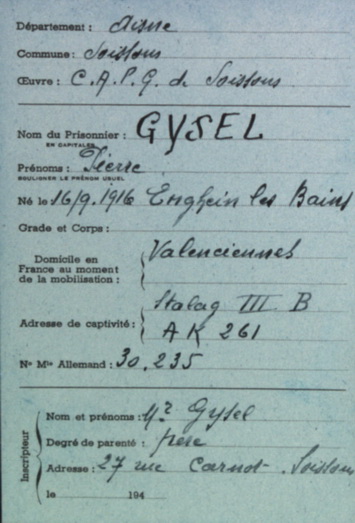 Département : Aisne
Commune : Soissons
Œuvre : C.A.P.G. de Soissons
Nom du Prisonnier : GYSEL
EN CAPITALES
Prénoms : Pierre
SOULIGNER LE PRÉNOM USUEL
Né le 16/9.1916 Enghein les Bains
Grade et Corps :
Domicile en
France au moment
de la mobilisation :
Valenciennes
Stalag III B
Adresse de captivité :
AK 261
Nº Mle Allemand : 30.235
Inscripteur
Nom et prénoms : Mr Gysel
Degré de parenté : père
Adresse : 27 rue Carnot - Soissons
le 194